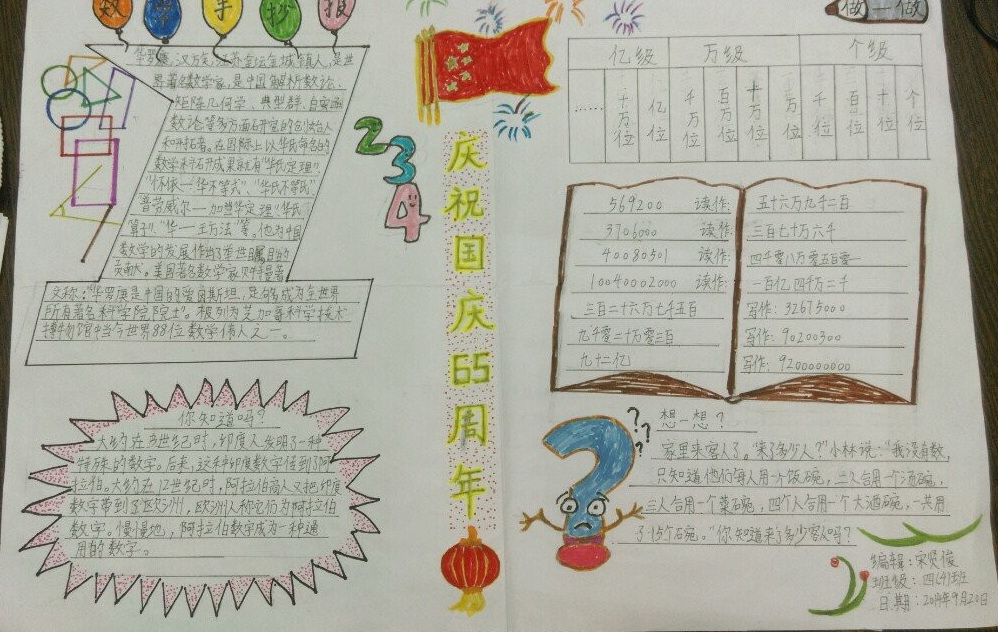 数学手抄报
华罗庚,汉族,江苏金坛金城镇人,是世
界著名数学家,是中国解析数论、
矩阵几何学、典型群、自守函
数论等多方面研究的创始人
和开拓者。在国际上以华氏命名的
数学科研成果就有“华氏定理”、
“怀依—华不等式”、“华氏不等式”、
普劳威尔—加当华定理”“华氏
算子”、“华—王方法”等。他为中国
数学的发展作出了举世瞩目的
贡献。美国著名数学家贝特曼著
文称:“华罗庚是中国的爱因斯坦,足够成为全世界
所有著名科学院院士”。被列为芝加哥科学技术
博物馆中当今世界88位数学伟人之一。
你知道吗?
大约在3世纪时,印度人发明了一种
特殊的数字。后来,这种印度数字传到了阿
拉伯。大约在12世纪时,阿拉伯商人又把印度
数字带到了欧洲,欧洲人称它们为阿拉伯
数字。慢慢地,阿拉伯数字成为一种通
用的数字。
234
庆祝国庆65周年
做一做
亿级 万级 个级
…… 十亿位 亿位 千万位 百万位 十万位 万位 千位 百位 十位 个位
569200 读作:五十六万九千二百
3706000 读作:三百七十万六千
40080501 读作:四千零八万零五百零一
10040002000 读作:一百亿四千万二千
三百二十六万七千五百 写作:32675000
九千零二十万零三百 写作:90200300
九十二亿 写作:9200000000
? ? ?
想一想?
家里来客人了。“来了多少人?”小林说:“我没有数,
只知道他们每人用一个饭碗,二人合用一个汤碗,
三人合用一个菜碗,四个人合用一个大酒碗,一共用
了15个碗。”你知道来了多少客人吗?
编辑:宋贤俊
班级:四(4)班
日期:2014年9月20日